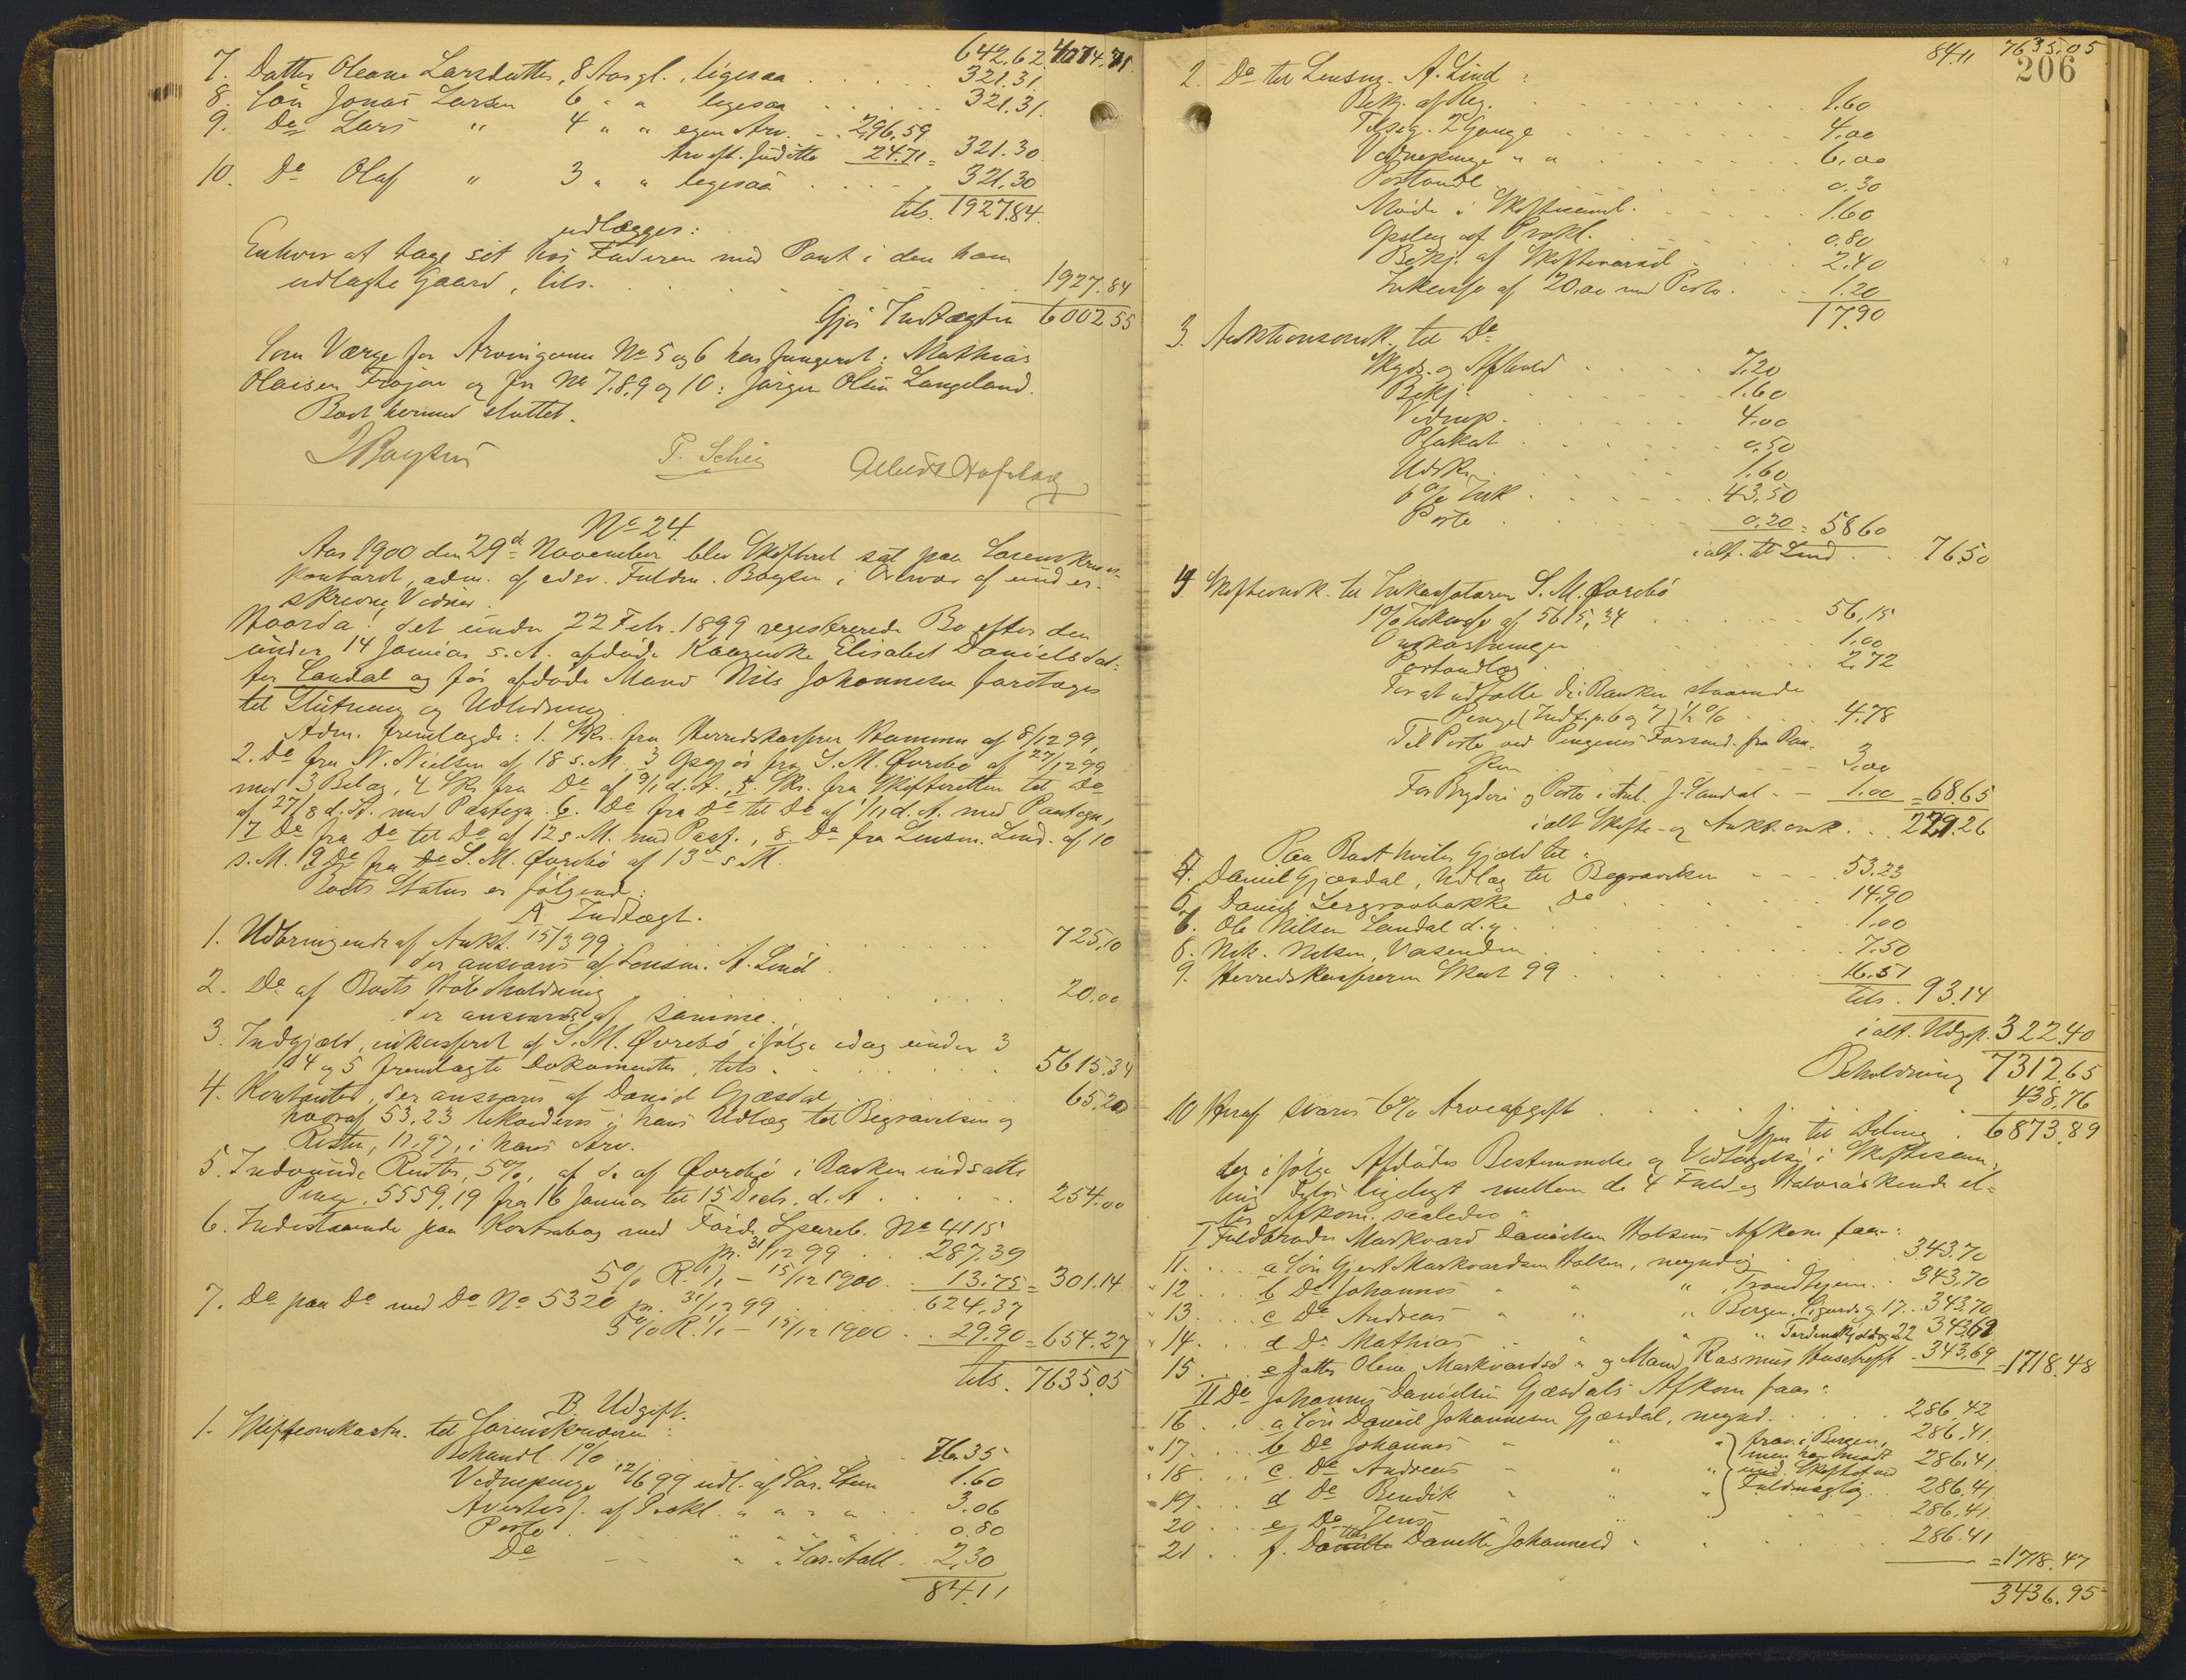 642.62 4074.71
7. Datter Oleane Larsdatter, 8 Aar gl., ligesaa . . . 321.31.
8. Sön Jonas Larsen 6 " " ligesaa . . . 321.31.
9. Do Lars " 4 " " egen Arv. . . 296.59
Arv eft. Juditte 24.71 = 321.30.
10. Do Olaf " 3 " " ligesaa . . . 321.30
tils. 1927.84.
udlægges:
Enhver at tage sit hos Faderen med Pant i den ham
udlagte Gaard, tils. . . . 1927.84
Gjör Indtægten 6002.55
Som Værge for Arvingerne No 5 og 6 har fungeret: Mathias
Olaisen Fröjen og for No 7.8.9 og 10: Jörgen Olsen Langeland.
Boet hermed sluttet.
P. Schei
No 24.
Aar 1900 den 29de November blev Skifteret sat paa Sorenskriver-
kontoret, adm. af edsv. Fuldm. Boysen i Overvær af under-
skrevne Vidner.
Hvorda: det under 22 Febr. 1899 registrerede Bo efter den
under 14 Januar s. A. afdöde Kaarenke Elisabet Danielsdat-
ter Sandal og för afdöde Mand Nils Johannesen foretages
til Slutning og Udlodning
Adm. fremlagde: 1. Skr. fra Herredskasserer Hammer af 8/12 99,
2. Do fra N. Nielsen af 18 s. M. 3 Opgjör fra S. M. Övrebö af 27/12 99
med 3 Bilag, 4 Skr. fra Do af 9/1 d. A., 5. Skr. fra Skifteretten til Do
af 27/8 d. A. med Paategn. 6. Do fra Do til Do af 1/11 d. A. med Paategn,
7 Do fra Do til Do af 12 s. M. med Paat., 8. Do fra Lensm. Lind. af 10
s. M. 9 Do fra Do S. M. Övrebö af 13de s. M.
Boets Status er fölgende:
A. Indtægt.
1. Udbringende af Aukt. 15/3 99 . . . 725,10
der ansvares af Lensm. A. Lind.
2. Do af Boets Höbeholdning . . . 20.00
der ansvares af samme.
3. Indgjæld, inkasseret af S. M. Övrebö ifölge idag under 3
4 og 5 fremlagte Dokumenter, tils. . . . 5615.34
4. Kontanter, der ansvares af Daniel Gjæsdal . . . 65.20
hvoraf 53.23 likvideres i hans Udlæg til Begravelsen og
Resten, 11.97, i hans Arv.
5. Indvundne Renter, 5%, af de af Övrebö i Banken indsatte
Penge. 5559,19 fra 16 Januar til 15 Decb. d. A . . . 254.00
6. Indestaaende paa Kontrabog med Förde Spareb. No 4115
pr. 31/12 99 . . 287,39
5% R. 1/1 - 15/12 1900 . . 13.75 = 301.14
7. Do paa Do med Do No 5320 pr. 31/12 99 . . . 624,37
5% R. 1/1 - 15/12 1900 . . 29.90 = 654.27
tils. 7635.05
B. Udgift.
1. Skifteomkostn. til Sorenskriveren:
Behandl. 1% . . . 76.35
Vidnepenge 12/6 99 udl. af Sor. Stun 1.60
Avertiss. af Prokl. " " " " . . 3.06
Porto . . " " " " . . 0.80
Do " " Sor. Aall . . 2,30
84.11
84.11 7635.05
206
2. Do til Lensm. A. Lind:
Bekj. af Reg. . . . 1.60
Tilsig. 2 Gange . . . 4.00
Vidnepenge " " . . . 6.00
Portoudl. . . . 0.30
Möde i Skiftesaml. . . . 1.60
Opslag af Prokl. . . . 0.80
Bekj. af Skiftevarsel . . . 2.40
Inkasso af 20.00 med Porto . . . 1.20
17.90
3. Auktionsomk. til Do
Skyds. og Afhold . . . 7.20
Bekj. . . . 1.60
Vidnep. . . . 4.00
Plakat . . . 0.50
Udsk. . . . 1.60
6% Ink . . . 43.50
Porto . . . 0.20 = 58.60
ialt til Lind . . 76.50
4 Skifteomk. til Inkassatoren S. M. Övrebö
1% Inkasso af 5615,34 . . . 56,15
Omkostninger . . . 1.00
Portoudlæg . . . 2.72
For at udtælle de i Banken staaende
Penge (Indt. p. 6 og 7) 1/2% . . . 4.78
Til Porto ved Pengenes Forsend. fra Ban-
ken . . . 3.00
For Bryderi og Porto i Anl. J. Sandal . . 1.00 = 68.65
ialt Skifte- og Aukt. omk. . . 229.26
Paa Boet hviler Gjæld til:
5. Daniel Gjæsdal, Udlæg til Begravelsen . . . 53.23
6. Daniel Lergravbakke Do . . . 14.90
7. Ole Nilsen Sandal d. y. . . . 1.00
8. Nik. Nilsen Vasenden . . . 7.50
9. Herredskassereren Skat 99 . . . 16.51
tils. 93.14
ialt. Udgift. 322.40
Beholdning 7312.65
10 Heraf svares 6% Arveafgift . . . 438,76
Igjen til Deling . 6873.89
der ifölge Afdödes Bestemmelse og Vedtagelse i Skiftesam-
ling deles ligeligt mellem de 4 Fuld og Halvsöskende el-
ler Afkom. saaledes:
I Fuldbroder Markvard Danielsen Holsens Afkom faar:
11. . . a Sön Gjert Markvardsen Holsen, myndig . . 343.70
" 12 . . b Do Johannes " " " Trondhjem . . 343,70
" 13 . . c Do Andreas " " " Bergen, Sigurdsg. 17 . . 343.70
" 14 . . d Do Mathias " " " Tordenskjoldsgd. 22 343.69
15 . . e Datter Olene Markvardsd " og Mand Rasmus Husetuft . 343,69 = 1718.48
II Do Johannes Danielsen Gjæsdals Afkom faar:
16 . . a Sön Daniel Johannesen Gjæsdal, mynd. . . . 286,42
" 17 . . b Do Johannes " " " } frav. i Bergen, 286.41
" 18 . . c. Do Andreas " " " men har mödt 286.41
" 19 . . d Do Bendik " " " ved Skiftef. ved Fuldmægtig . . 286.41
20 . . e Do Jens " . . . 286.41
21 . . f. Datter Danette Johannesd " . . . 286.41
= 1718.47
3436.95